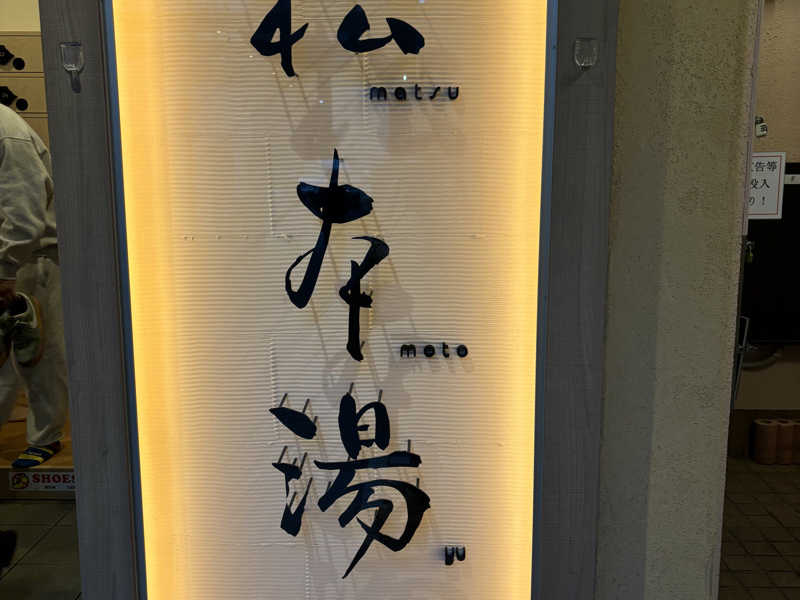 松
matsu
本
moto
湯
yu
告等
投入
り！
SHOES